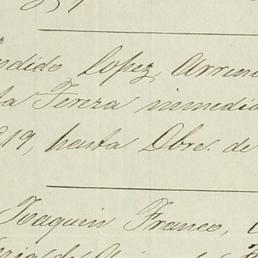 ndido Lopez, Arren
la Tereza inmedia
19, hasta Obre de
Joaquin Franco,